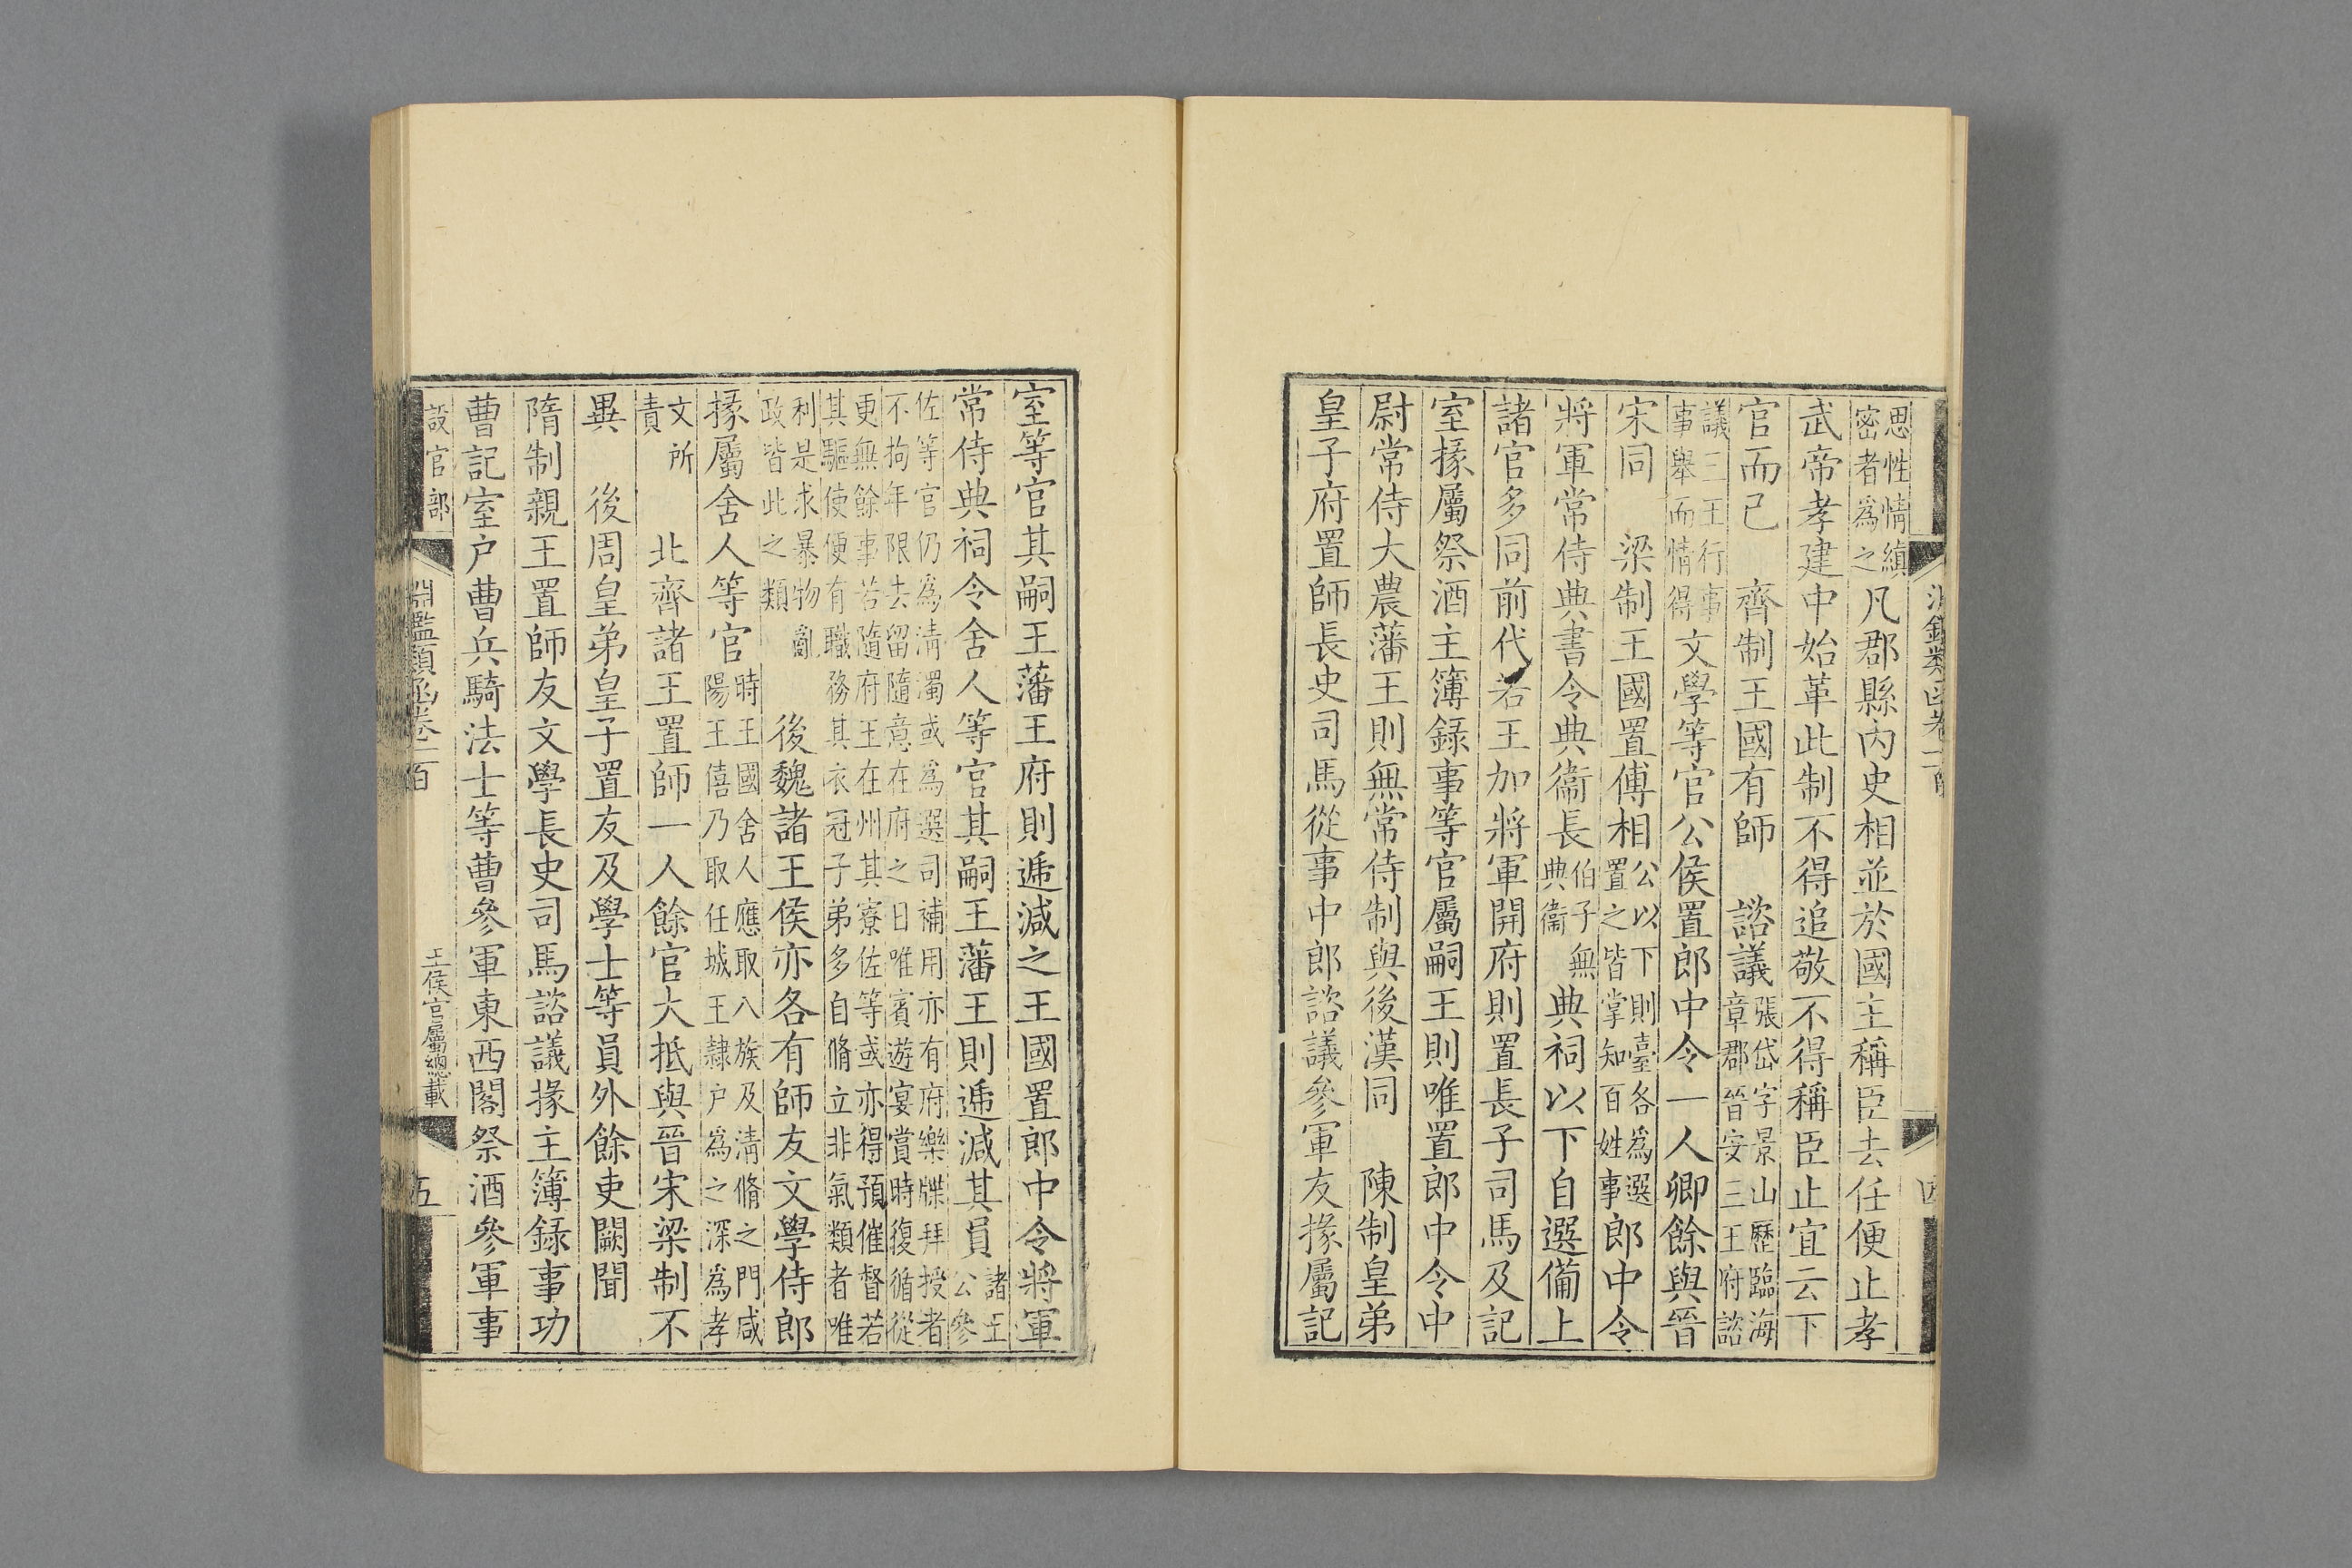 思性情縝
密者為之凡郡縣內史相並於國主稱臣去任便止孝
武帝孝建中始革此制不得追敬不得稱臣止宜云下
官而已　齊制王國有師　諮議張岱字景山歷臨海
章郡晉安三王府諮
議三王行事
事舉而情得文學等官公侯置郎中令一人卿餘與晉
宋同　梁制王國置傅相公以下則臺各為選
置之皆掌知百姓事郎中令
將軍常侍典書令典衞長伯子無
典衞典祠以下自選備上
諸官多同前代若王加將軍開府則置長子司馬及記
室掾屬祭酒主簿錄事等官屬嗣王則唯置郎中令中
尉常侍大農藩王則無常侍制與後漢同　陳制皇弟
皇子府置師長史司馬從事中郎諮議參軍友掾屬記
室等官其嗣王藩王府則遞減之王國置郎中令將軍
常侍典祠令舍人等官其嗣王藩王則遞減其員諸王
公參
佐等官仍為清濁或為選司補用亦有府樂牒拜授者
不拘年限去留隨意在府之日唯賓遊宴賞時復循從
更無餘事若隨府王在州其寮佐等或亦得預催督若
其驅使便有職務其衣冠子弟多自脩立非氣類者唯
利是求暴物亂
政皆此之類　後魏諸王侯亦各有師友文學侍郎
掾屬舍人等官時王國舍人應取八族及清脩之門咸
陽王僖乃取任城王隸户為之深為孝
文所
責　北齊諸王置師一人餘官大抵與晉宋梁制不
異　後周皇弟皇子置友及學士等員外餘史闕聞
隋制親王置師友文學長史司馬諮議掾主簿錄事功
曹記室户曹兵騎法士等曹參軍東西閣祭酒參軍事
設官部
淵鑑類函卷一百
王侯官屬總載
五